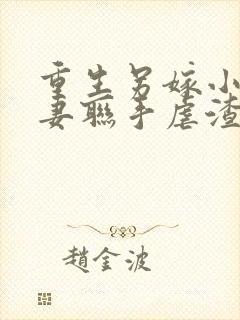 重生另嫁小
妻聯手虐渣
趙金波